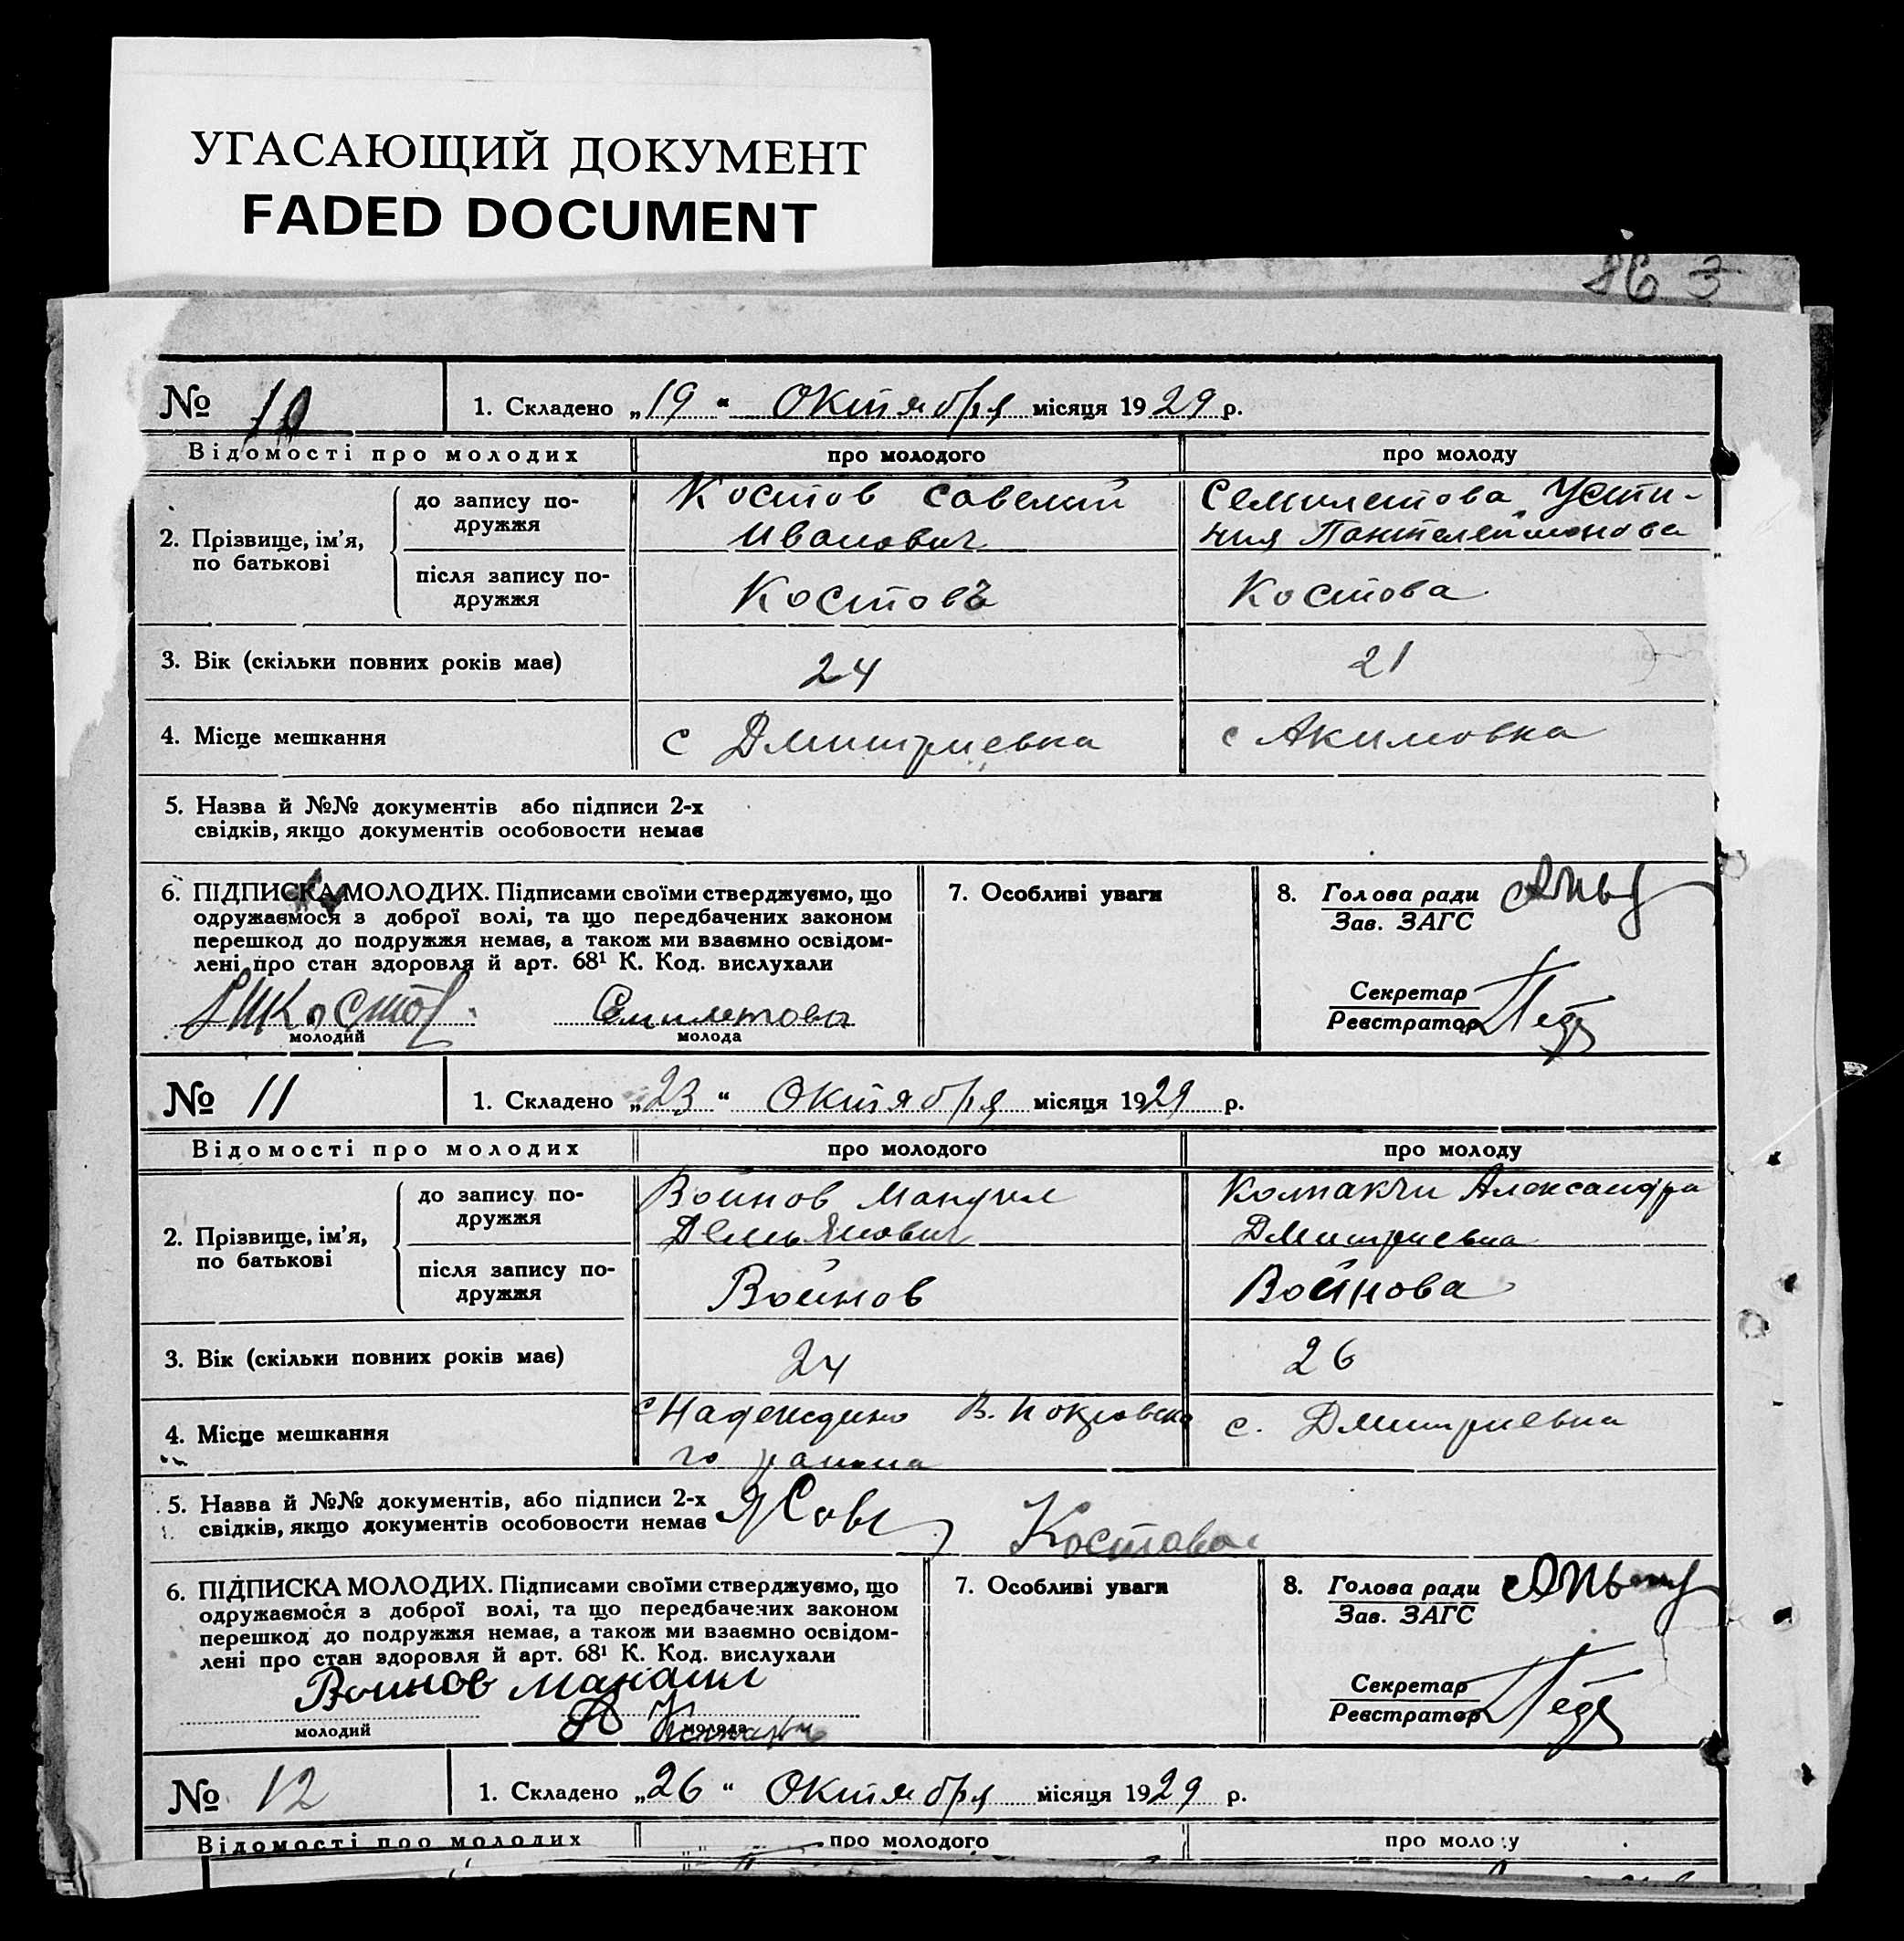 УГАСАЮЩИЙ ДОКУМЕНТ
FADED DOCUMENT
86 3
№ 10
1. Складено „19“ Октября місяця 1929 р.
Відомості про молодих
про молодого
про молоду
2. Прізвище, ім’я, по батькові
до запису подружжя
Костов Савелий
Иванович
Семилетова Усти-
ния Пантелеймонова
після запису подружжя
Костовъ
Костова
3. Вік (скільки повних років має)
24
21
4. Місце мешкання
с Дмитриевка
с Акимовка
5. Назва й №№ документів або підписи 2-х
свідків, якщо документів особовости немає
6. ПІДПИСКА МОЛОДИХ. Підписами своїми стверджуємо, що
одружаємося з доброї волі, та що передбачених законом
перешкод до подружжя немає, а також ми взаємно освідом-
лені про стан здоровля й арт. 68¹ К. Код. вислухали
Костов
молодий
Семилетова
молода
7. Особливі уваги
8. Голова ради
Зав. ЗАГС
Секретар
Реєстратор
№ 11
1. Складено „23“ Октября місяця 1929 р.
Відомості про молодих
про молодого
про молоду
2. Прізвище, ім’я, по батькові
до запису подружжя
Войнов Мануил
Демьянович
Колпакчи Александра
Дмитриевна
після запису подружжя
Войнов
Войнова
3. Вік (скільки повних років має)
24
26
4. Місце мешкання
с Надеждино В. Покровско
го района
с. Дмитриевка
5. Назва й №№ документів, або підписи 2-х
свідків, якщо документів особовости немає
Костова
6. ПІДПИСКА МОЛОДИХ. Підписами своїми стверджуємо, що
одружаємося з доброї волі, та що передбачених законом
перешкод до подружжя немає, а також ми взаємно освідом-
лені про стан здоровля й арт. 68¹ К. Код. вислухали
Воинов Манаил
молодий
молода
7. Особливі уваги
8. Голова ради
Зав. ЗАГС
Секретар
Реєстратор
№ 12
1. Складено „26“ Октября місяця 1929 р.
Відомості про молодих
про молодого
про молоду